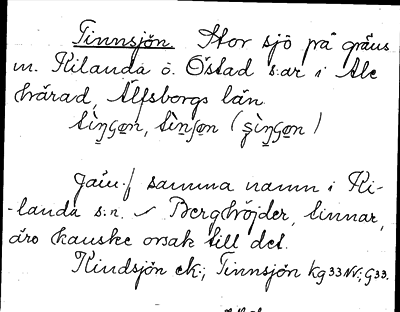 Tinnsjön. Stor sjö på gräns
m. Kilanda o. Östad s:ar i Ale
härad, Älfsborgs län.
Jäm.f samma namn i Ki-
-landa s:n. Berghöjder, tinnar,
äro kanske orsak till det.
Kindsjön ek.; Tinnsjön kg 33 NV; G 33.